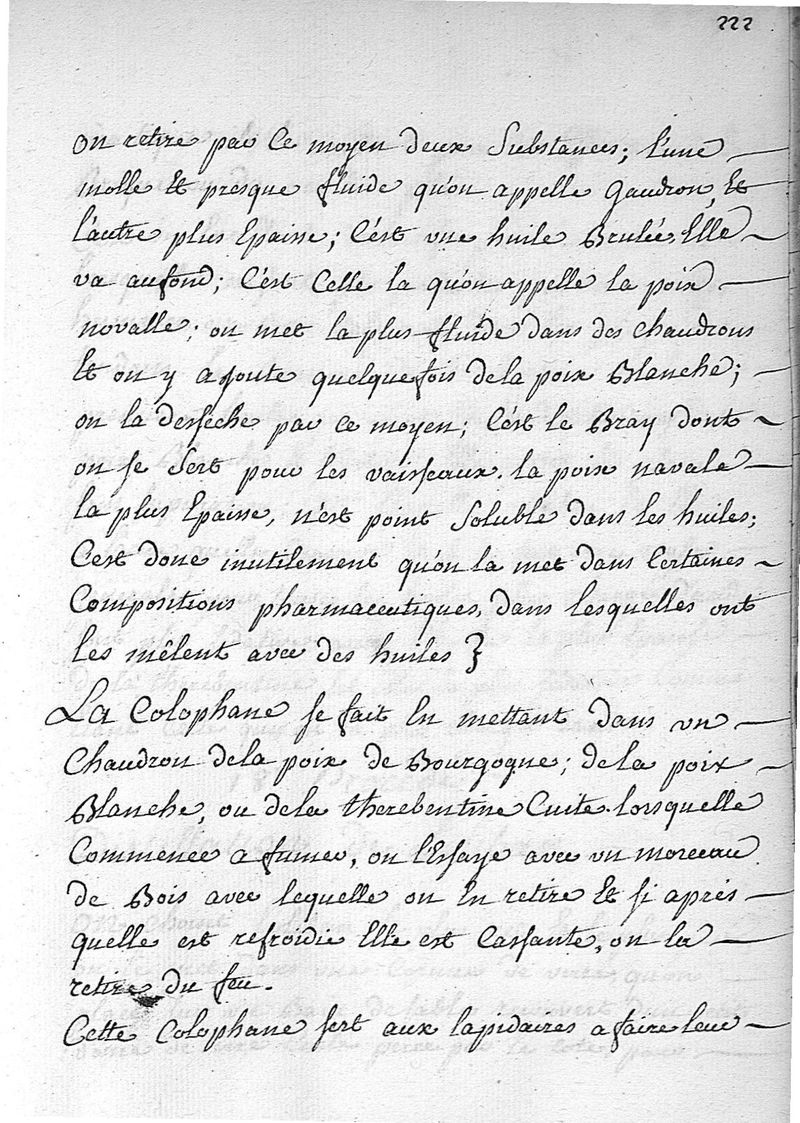 222
on retire par ce moyen deux Substances; l'une
molle Et presque fluide qu'on appelle gaudron, Et
l'autre plus Epaisse; C'est une huile Brulée, Elle
va au fond; C'est Celle la qu'on appelle la poix
novalle; on met la plus fluide dans des chaudrons
Et on y ajoute quelque fois de la poix Blanche;
on la desseche par ce moyen; C'est le Bray dont
on se Sert pour les vaisseaux. la poix navale
la plus Epaisse, n'est point Soluble dans les huiles;
C'est donc inutilement qu'on la met dans Certaines
Compositions pharmaceutiques, dans lesquelles ont
les mêlent avec des huiles }
La Colophane se fait En mettant dans un
Chaudron de la poix de Bourgogne; de la poix
Blanche, ou de la therebentine Cuite. lorsquelle
Commence a fumer, on l'Essaye avec un morceau
de Bois avec lequelle on En retire Et si après
quelle est refroidie Elle est Cassante, on la
retire du feu.
Cette Colophane sert aux lapidaires a faire leur